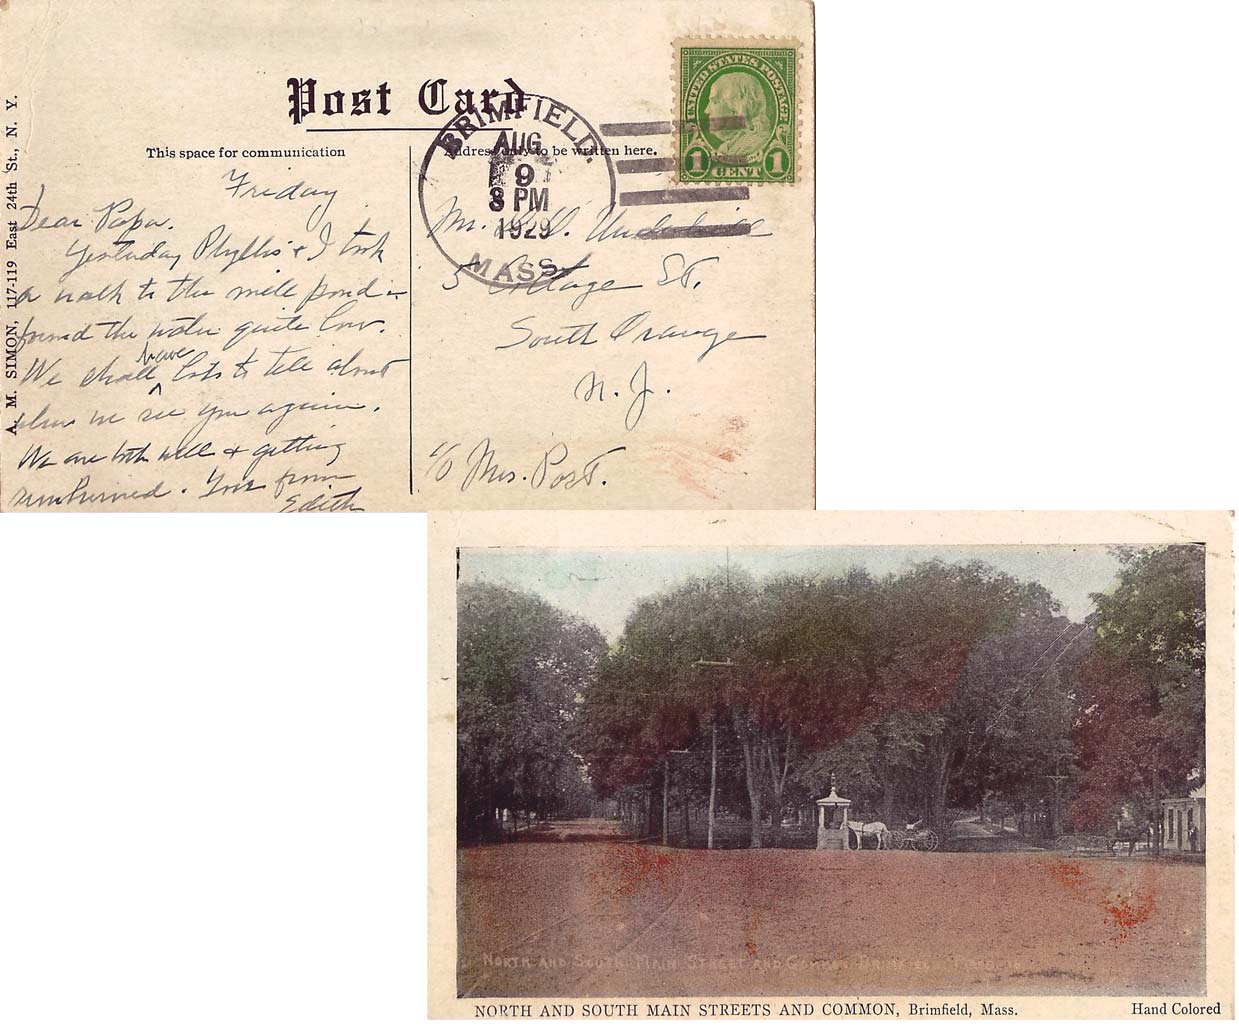 Post Card
This space for communication
Address only to be written here.
A. M. SIMON, 117-119 East 24th St., N. Y.
BRIMFIELD.
AUG
9
8 PM
1929
MASS.
UNITED STATES POSTAGE
1 CENT 1
Friday
Dear Papa.
Yesterday Phyllis & I took
a walk to the mill pond &
found the water quite low.
We shall have lots to tell about
when we see you again.
We are both well & getting
sunburned. Love from
Edith
Mr. Underhill
5 Cottage St,
South Orange
N. J.
c/o Mrs. Post.
NORTH AND SOUTH MAIN STREET AND COMMON
NORTH AND SOUTH MAIN STREETS AND COMMON, Brimfield, Mass.
Hand Colored